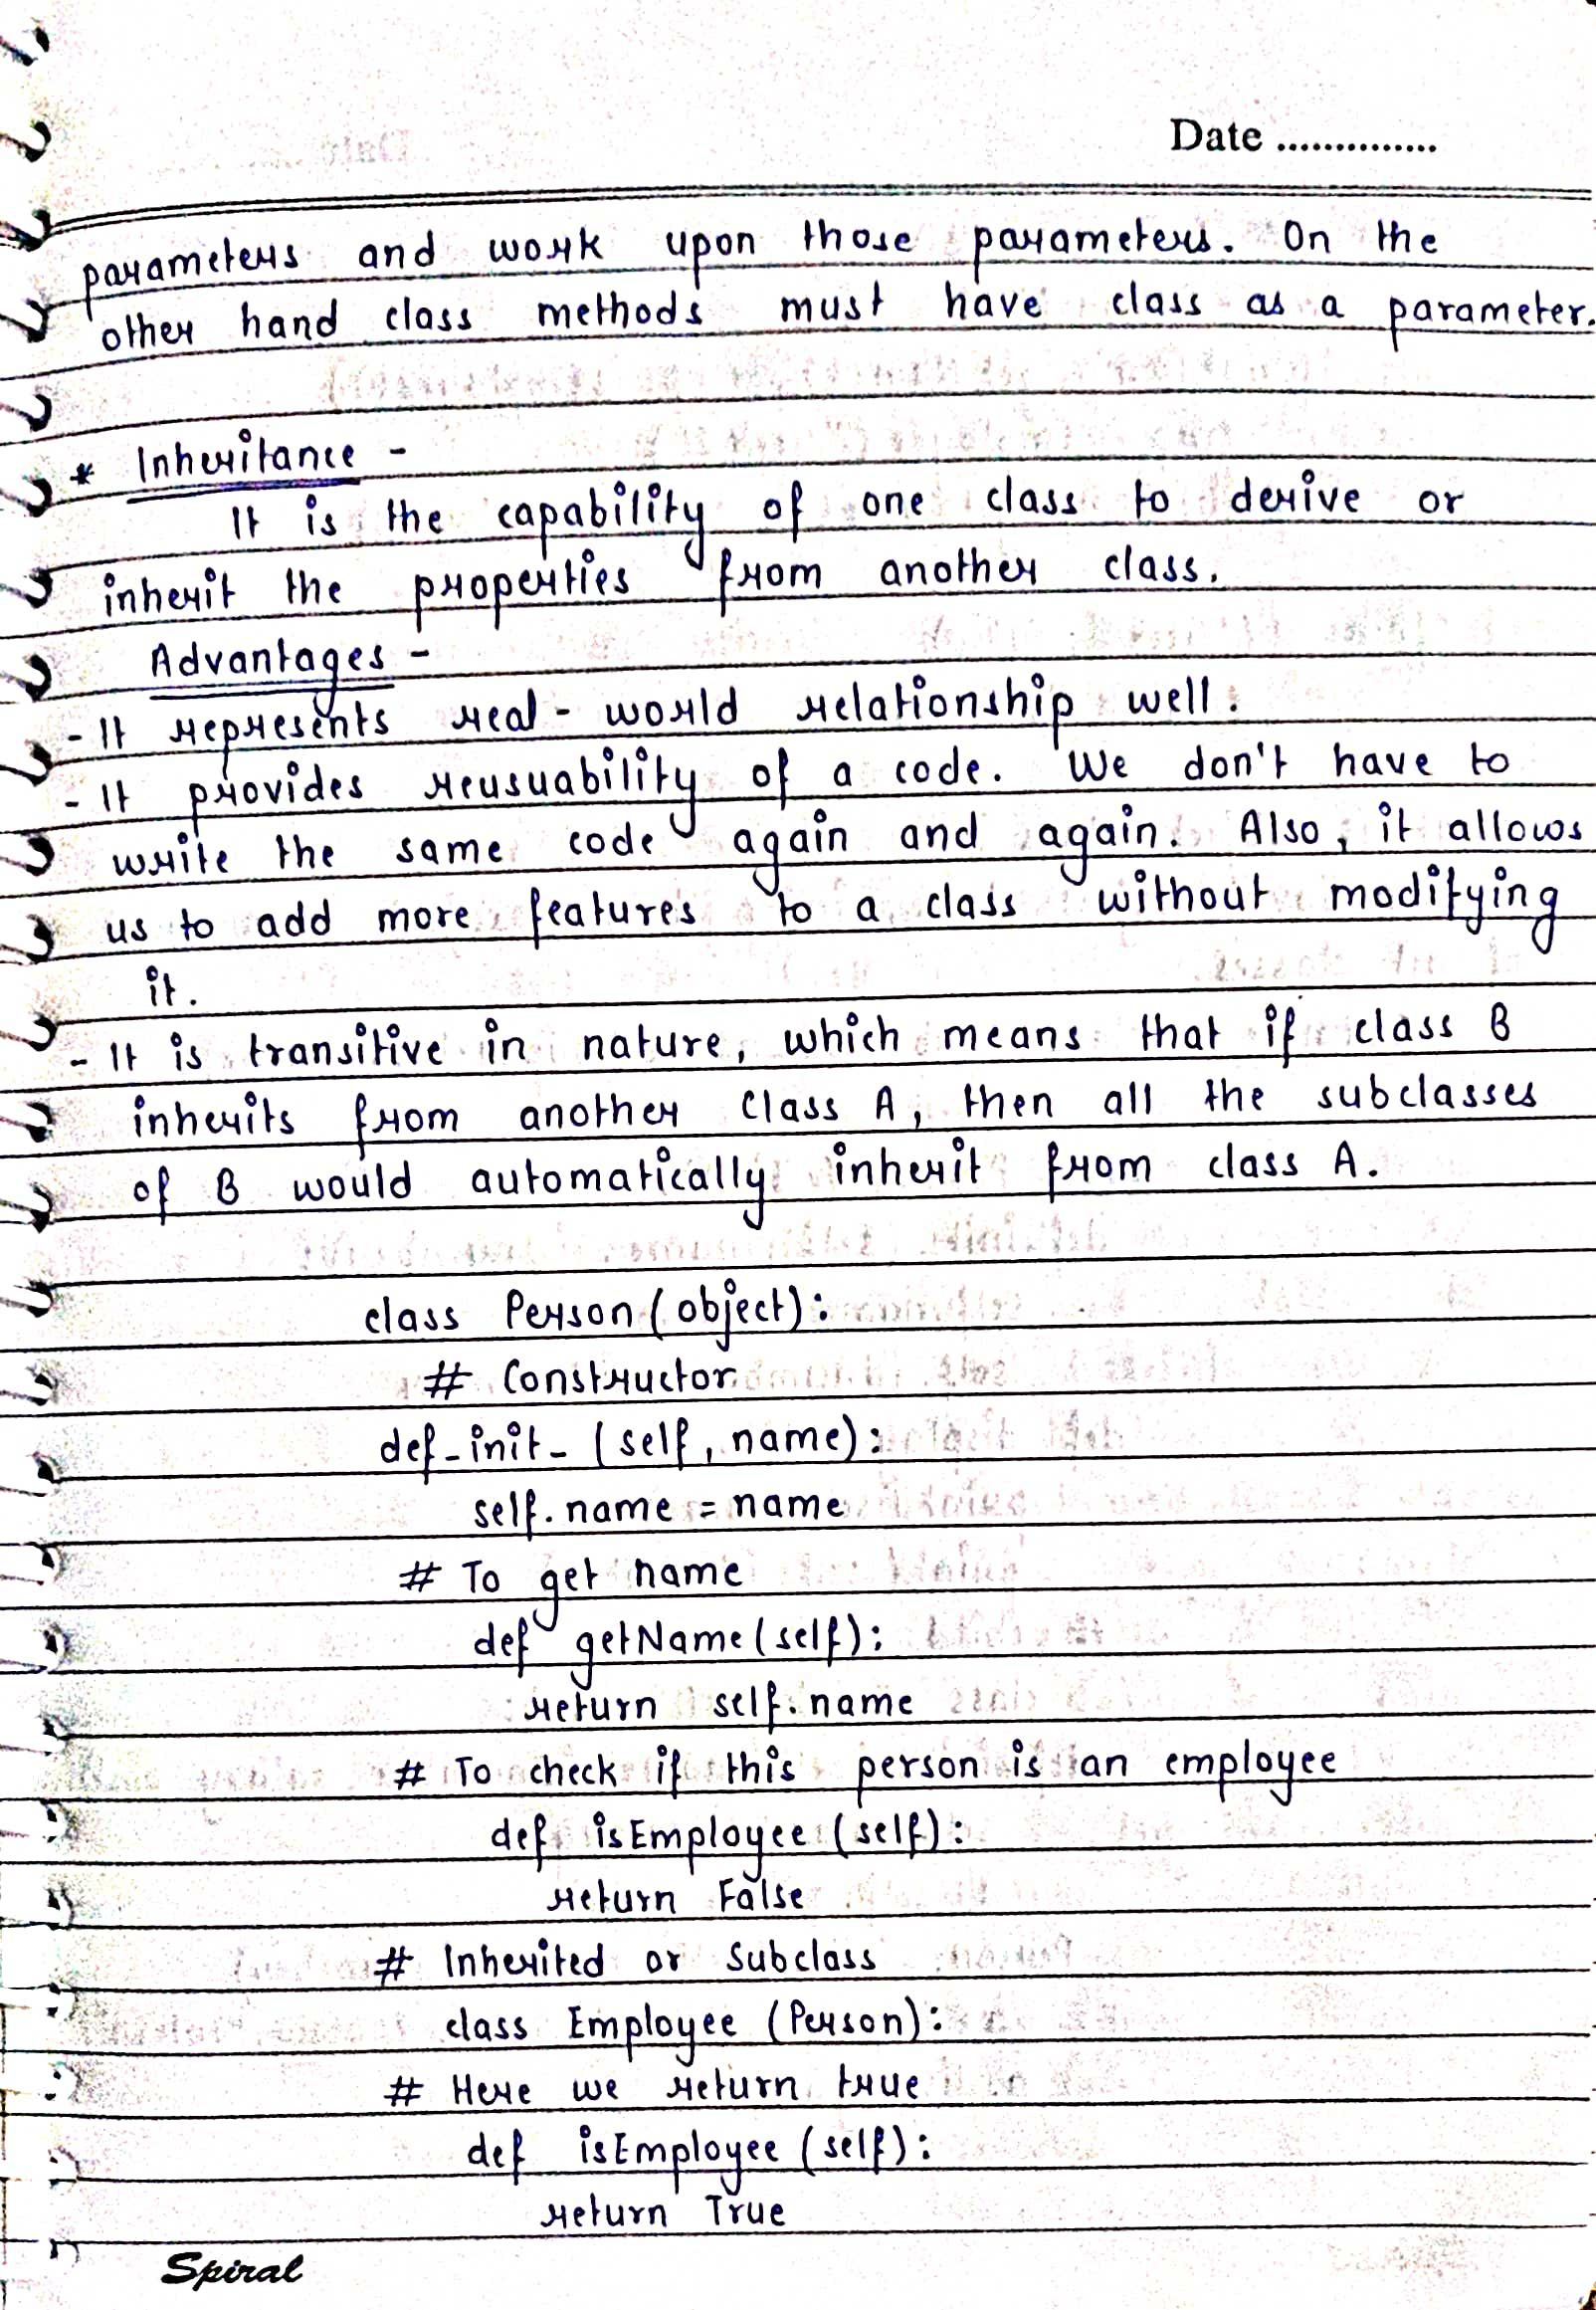 Date ..............
parameters and work upon those parameters. On the
other hand class methods must have class as a parameter.
* Inheritance -
It is the capability of one class to derive or
inherit the properties from another class.
Advantages -
- It represents real - world relationship well.
- It provides reusuability of a code. We don't have to
write the same code again and again. Also, it allows
us to add more features to a class without modifying
it.
- It is transitive in nature, which means that if class B
inherits from another class A, then all the subclasses
of B would automatically inherit from class A.
class Person (object):
# Constructor
def _init_ (self, name):
self.name = name
# To get name
def getName (self):
return self.name
# To check if this person is an employee
def isEmployee (self):
return False
# Inherited or Subclass
class Employee (Person):
# Here we return true
def isEmployee (self):
return True
Spiral